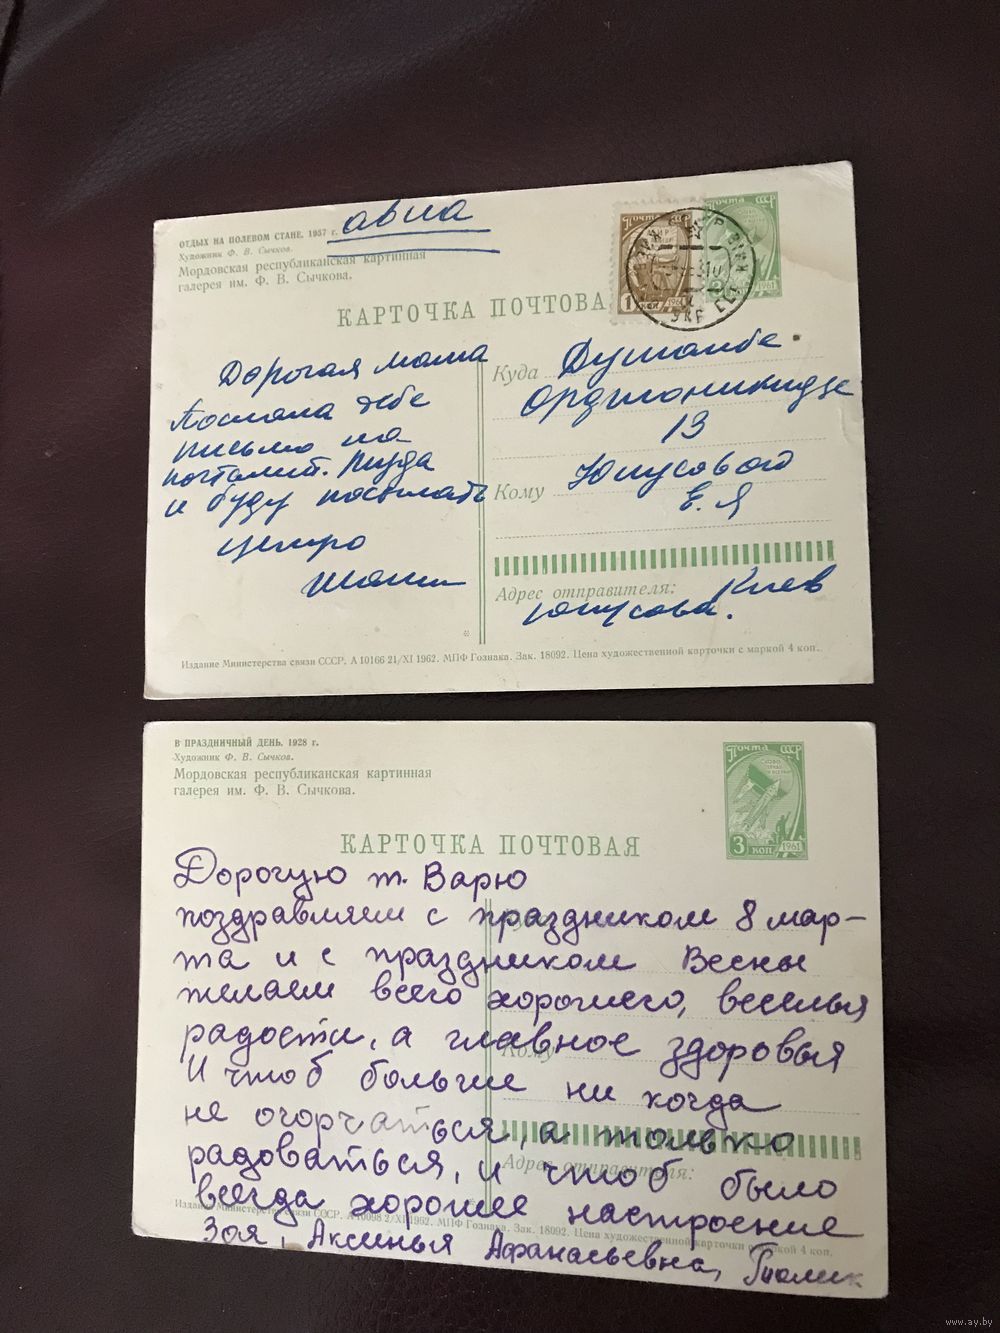 ОТДЫХ НА ПОЛЕВОМ СТАНЕ. 1957 г.
Художник Ф. В. Сычков.
Мордовская республиканская картинная
галерея им. Ф. В. Сычкова.
авиа
Почта СССР
1 коп 1961
Почта СССР
1961
КАРТОЧКА ПОЧТОВА
Дорогая мама
Послала тебе
письмо на
почтамт. Туда
и буду посылать
Куда Душанбе.
Орджоникидзе
13
Кому Юнусовой
Е. Я
Адрес отправителя: Киев
Юнусова.
Издание Министерства связи СССР. А 10166 21/XI 1962. МПФ Гознака. Зак. 18092. Цена художественной карточки с маркой 4 коп.
В ПРАЗДНИЧНЫЙ ДЕНЬ. 1928 г.
Художник Ф. В. Сычков.
Мордовская республиканская картинная
галерея им. Ф. В. Сычкова.
Почта СССР
3 коп 1961
КАРТОЧКА ПОЧТОВАЯ
Дорогую т. Варю
поздравляем с праздником 8 мар-
та и с праздником Весны
желаем всего хорошего, веселья
радости, а главное здоровья
Кому
И чтоб больше ни когда
не огорчаться, а только
радоваться, и чтоб было
Адрес отправителя:
всегда хорошее настроение
Издание Министерства связи СССР. А 10098 2/XI 1962. МПФ Гознака. Зак. 18092. Цена художественной карточки с маркой 4 коп.
Зоя, Аксинья Афанасьевна, Толик
www.ay.by